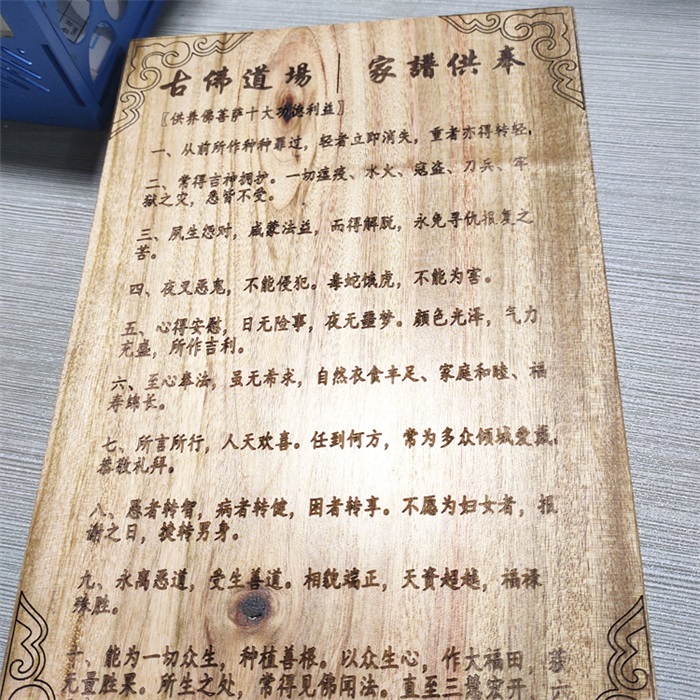 古佛道場 | 家譜供奉
〖供养佛菩萨十大功德利益〗
一、从前所作种种罪过，轻者立即消失，重者亦得转轻。
二、常得吉神拥护。一切瘟疫、水火、寇盗、刀兵、牢
狱之灾，悉皆不受。
三、夙生怨对，咸蒙法益，而得解脱，永免寻仇报复之
苦。
四、夜叉恶鬼，不能侵犯。毒蛇饿虎，不能为害。
五、心得安慰，日无险事，夜无噩梦。颜色光泽，气力
充盛，所作吉利。
六、至心奉法，虽无希求，自然衣食丰足、家庭和睦、福
寿绵长。
七、所言所行，人天欢喜。任到何方，常为多众倾城爱戴，
恭敬礼拜。
八、愚者转智，病者转健，困者转亨。不愿为妇女者，报
谢之日，捷转男身。
九、永离恶道，受生善道。相貌端正，天资超越，福禄
殊胜。
十、能为一切众生，种植善根。以众生心，作大福田，
无量胜果。所生之处，常得见佛闻法。直至三慧宏开，六